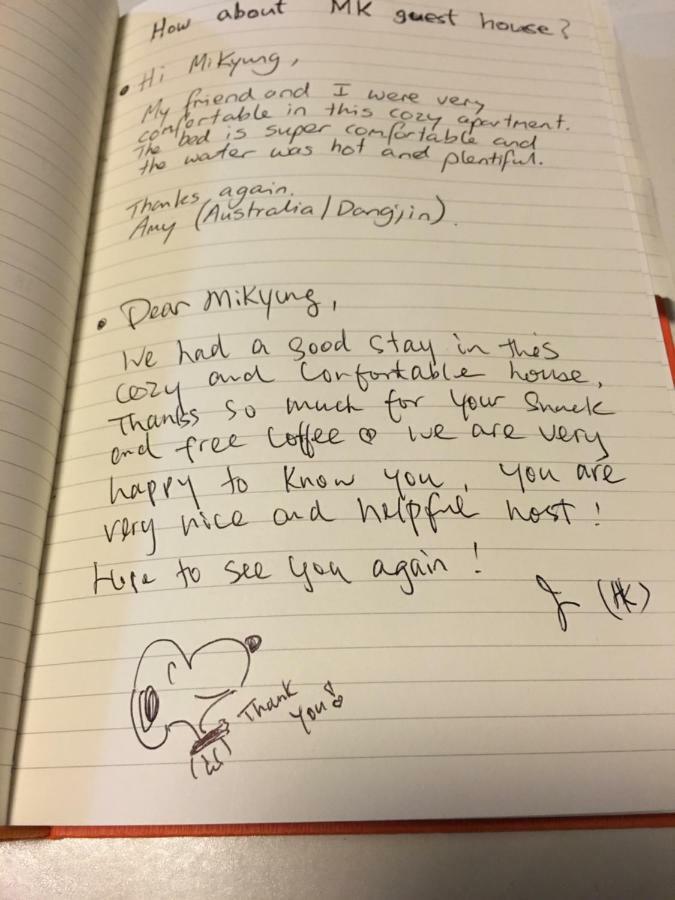 How about MK guest house?
• Hi MiKyung,
My friend and I were very
comfortable in this cozy apartment.
The bed is super comfortable and
the water was hot and plentiful.
Thanks again.
Amy (Australia/Dangjin).
• Dear MiKyung,
We had a good stay in this
cozy and confortable house,
Thanks so much for your snack
and free coffee ♡ We are very
happy to know you, you are
very nice and helpful host!
Hope to see you again!
(HK)
Thank
you!